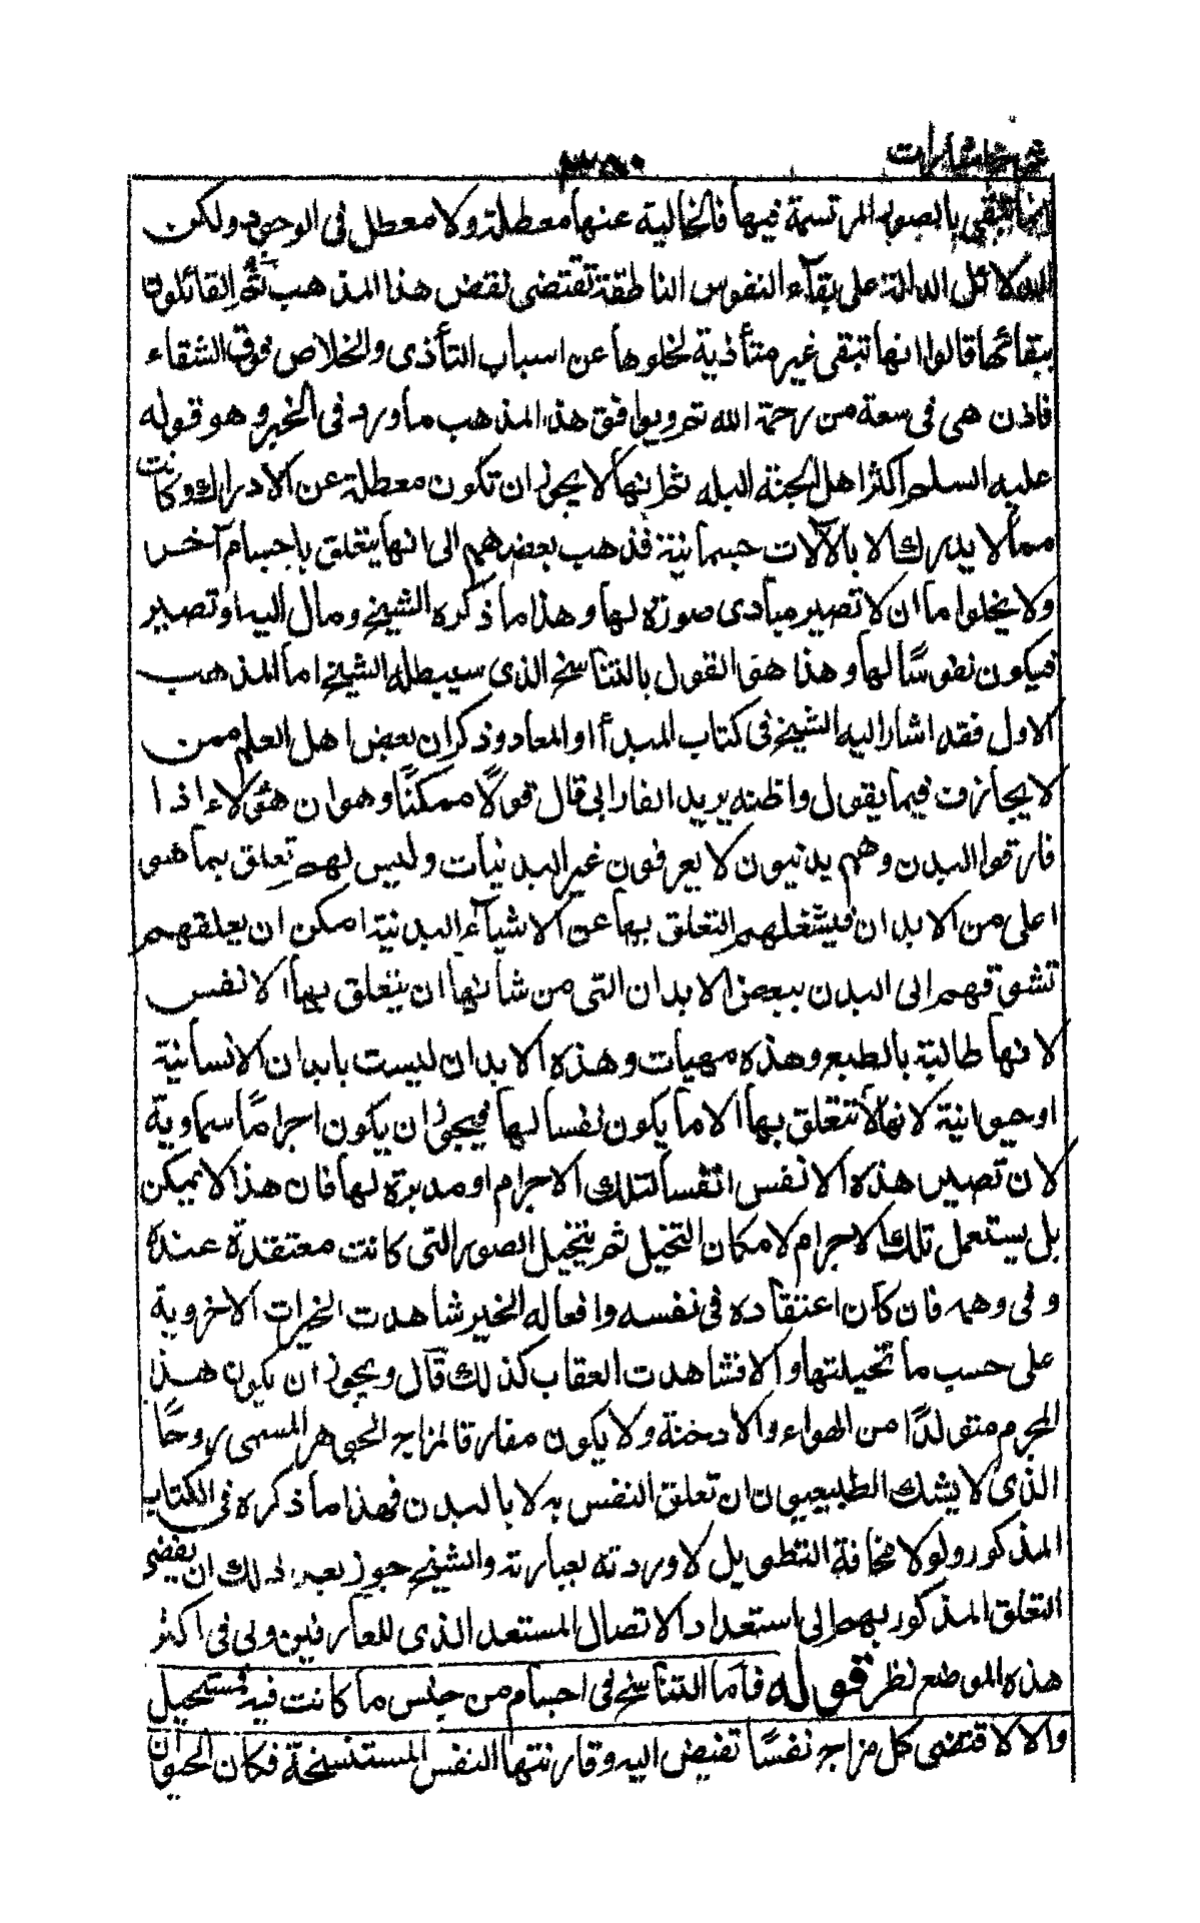 شرح اشارات
انما تبقى بالصور المرتسمة فيها فالخالية عنها معطلة ولا معطل فى الوجود ولكن
الدلائل الدالة على بقآء النفوس الناطقة تقتضى نقض هذا المذهب ثم القائلون
ببقائها قالوا انها تبقى غير متأذية لخلوها عن اسباب التأذى والخلاص فوق الشقاء
فاذن هى فى سعة من رحمة الله ثم ويوافق هذا المذهب ما ورد فى الخبر وهو قوله
عليه السلم اكثر اهل الجنة البله ثم انها لا يجوز ان تكون معطلة عن الادراك وكانت
مما لا يدرك الا بالآلات جسمانية فذهب بعضهم الى انها يتعلق باجسام آخر
ولا يخلوا ما ان لا تصير مبادى صورة لها وهذا ما ذكره الشيخ ومال اليه او تصير
فيكون نفوسًا لها وهذا هو القول بالتناسخ الذى سيبطله الشيخ اما المذهب
الاول فقد اشار اليه الشيخ فى كتاب المبدأ او المعاد وذكر ان بعض اهل العلم ممن
لا يجازف فيما يقول واظنه يريد الفارابى قال قولًا ممكنًا وهو ان هؤلاء اذا
فارقوا البدن وهم بدنيون لا يعرفون غير البدنيات وليس لهم تعلق بما هو
اعلى من الابدان فيشغلهم التعلق بها عن الاشيآء البدنية امكن ان يعلقهم
تشوقهم الى البدن ببعض الابدان التى من شأنها ان يتعلق بها الانفس
لانها طالبة بالطبع وهذه مهيات وهذه الابدان ليست بابدان الانسانية
او حيوانية لانها لا تتعلق بها الا ما يكون نفسا لها فيجوز ان يكون اجرامًا سماوية
لان تصير هذه الانفس انفسا لتلك الاجرام او مدبرة لها فان هذا لا يمكن
بل يستعمل تلك الاجرام لامكان التخيل ثم يتخيل الصور التى كانت معتقدة عنده
و فى وهمه فان كان اعتقاده فى نفسه وافعاله الخير شاهدت الخيرات الاخروية
على حسب ما تخيلتها والا فشاهدت العقاب كذلك قال ويجوز ان يكون هذا
الجرم متولدًا من الهواء والادخنة ولا يكون مفارقا لمزاج الجوهر المسمى روحًا
الذى لا يشك الطبيعيون ان تعلق النفس به لا بالبدن فهذا ما ذكره فى الكتاب
المذكور ولولا مخافة التطويل لاوردته بعبارته والشيخ جوز بعد ذلك ان يفضى
التعلق المذكور بهم الى استعداد الاتصال المستعد الذى للعارفين ولى فى اكثر
هذه المواضع نظر قوله فاما التناسخ فى اجسام من جنس ما كانت فيه فمستحيل
والا لاقتضى كل مزاج نفسًا تفيض اليه وقارنتها النفس المستنسخة فكان الحيوان